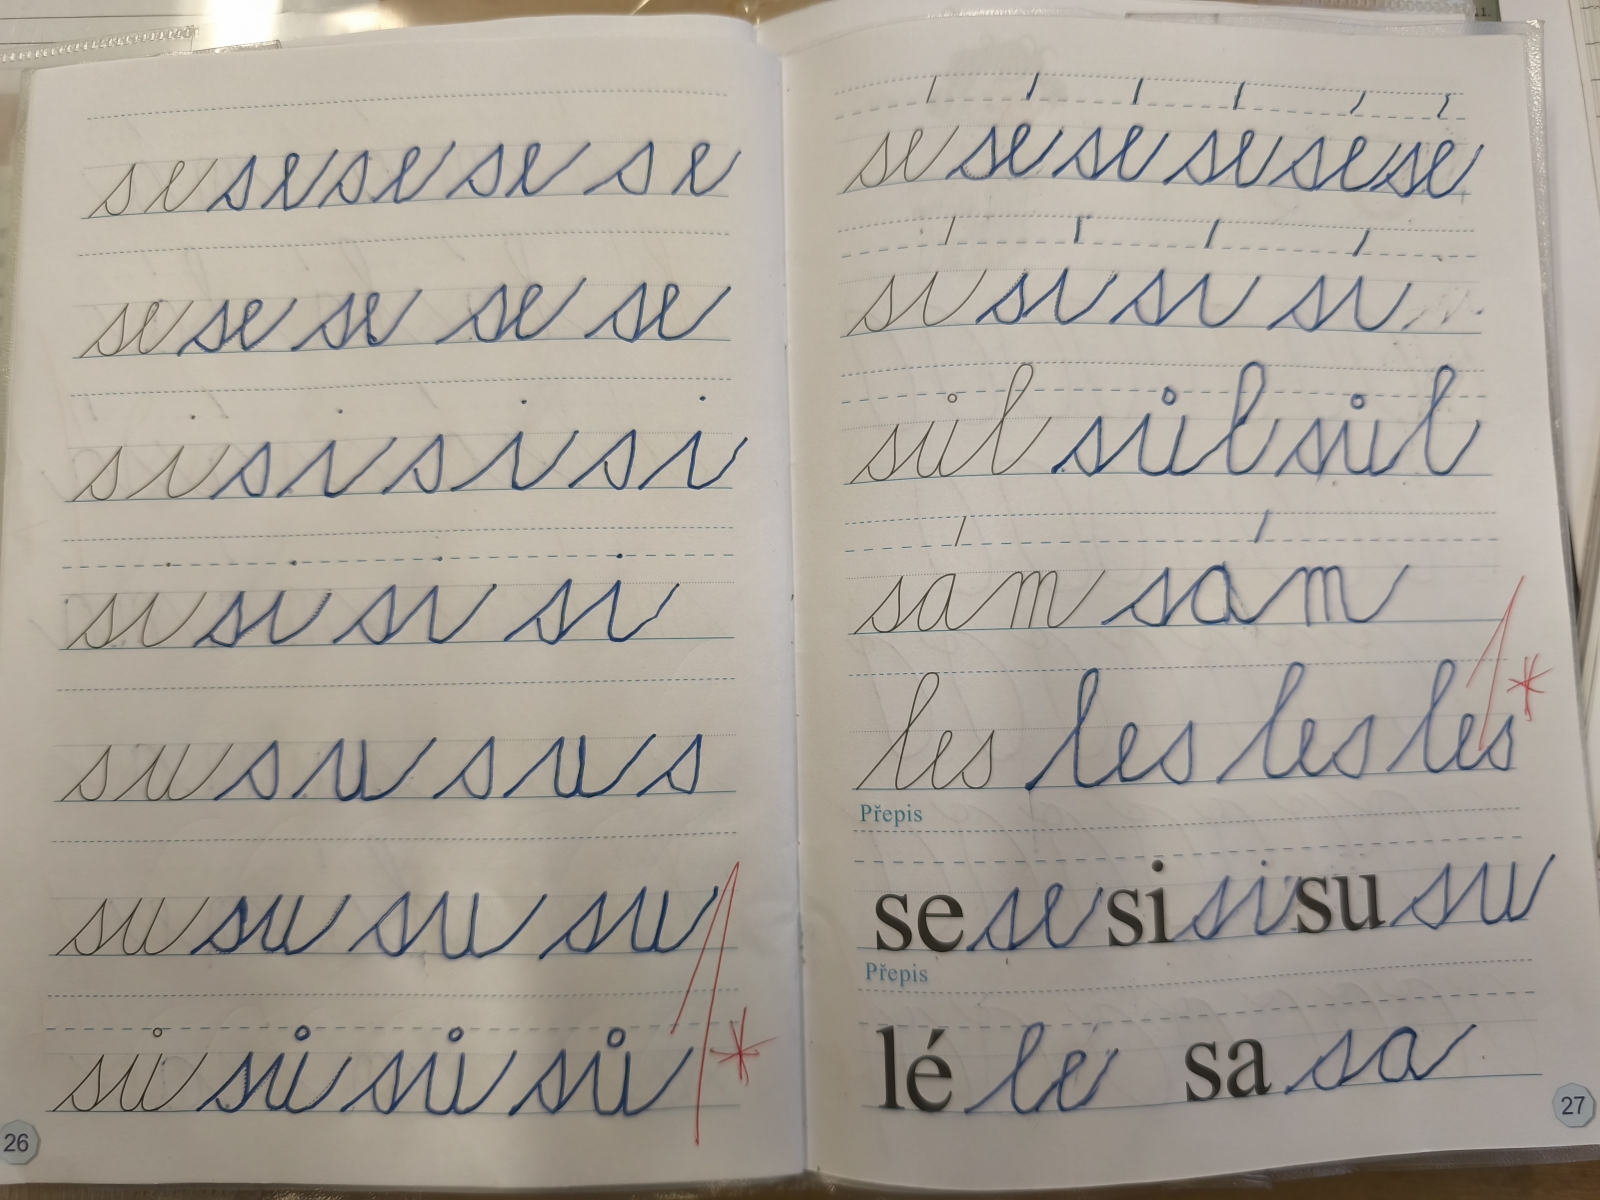 s e s e s e se s e
se se se se se
s i s i s i s i
si si si si
s u s u s u s
su su su su
sů sů sů sů
1*
26
sé sé sé sé sé sé
sí sí sí sí
sůl sůl sůl
sám sám
les les les les
1*
Přepis
se se si si su su
Přepis
lé lé sa sa
27